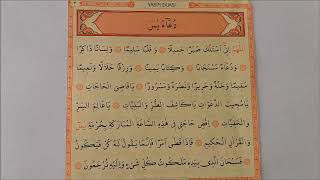 YASİN DUASI
دُعَاءُ يٰسٓ
اَللّٰهُمَّ اِنِّى اَسْئَلُكَ صَبْرًا جَمِيلًا ۞ وَ قَلْبًا سَلِيمًا ۞ وَلِسَانًا ذَاكِرًا
۞ وَدُعَاءً مُسْتَجَابًا ۞ وَكِتَابًا يَمِينًا ۞ وَرِزْقًا حَلَالًا ۞ وَنَعِيمًا
مُقِيمًا وَجَنَّةً وَحَرِيرًا وَنَضْرَةً وَسُرُورًا ۞ يَا قَاضِىَ الْحَاجَاتِ
يَا مُجِيبَ الدَّعَوَاتِ يَا كَاشِفَ الضُّرِّ وَالْبَلِيَّاتِ ۞ يَا عَالِمَ السِّرِّ
وَالْخَفِيَّاتِ ۞ اِقْضِ حَاجَتِى فِى هٰذِهِ السَّاعَةِ الْمُبَارَكَةِ بِحُرْمَةِ يٰسٓ
وَالْقُرْاٰنِ الْحَكِيمِ ۞ فَاِذَا قَضٰى اَمْرًا فَاِنَّمَا يَقُولُ لَهُ كُنْ فَيَكُونُ
فَسُبْحَانَ الَّذِى بِيَدِهِ مَلَكُوتُ كُلِّ شَىْءٍ وَاِلَيْهِ تُرْجَعُونَ